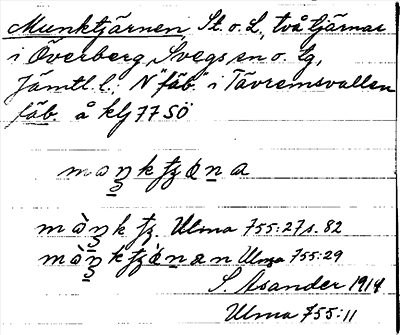 Munktjärnen, St. o. L., två tjärnar
i Överberg, Svegs sn o. tg,
Jämtl. l.; N "fäb." i Tävremsvallen
fäb. å klj 77 SÖ
Ulma 755:27 s. 82
Ulma 755:29
S. Åsander 1914
Ulma 755:11